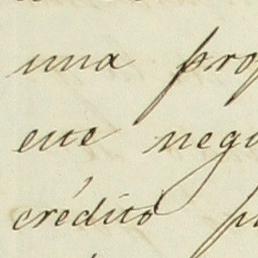 una prop
este nego
crédito p